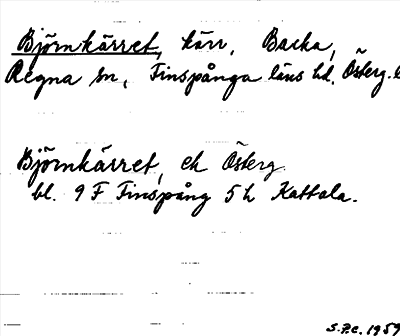 Björnkärret, kärr, Backa,
Regna sn, Finspånga läns hd, Österg. l
Björnkärret, ek Österg.
bl. 9 F Finspång 5 h Kattala.
S.P.c. 1959